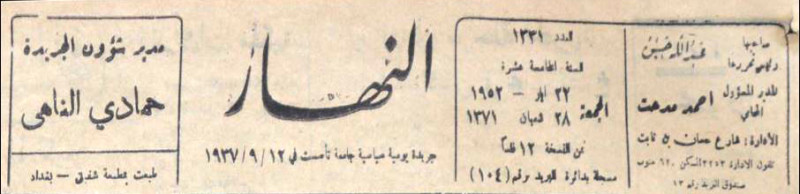 صاحبها
ورئيس تحريرها
عبد الله حسين
المدير المسؤول
المحامي
احمد مدحت
الادارة: شارع حسان بن ثابت
تلفون الادارة ٣٢٥٣ السكن ٦٢٠ جنوب
صندوق البريد رقم ١٣
العدد ١٣٣١
السنة الخامسة عشرة
الجمعة
٢٣ ايار - ١٩٥٢
٢٨ شعبان ١٣٧١
ثمن النسخة ١٢ فلساً
مسجلة بدائرة البريد برقم (١٠٤)
النهار
جريدة يومية سياسية جامعة تأسست في ١٩٣٧/٩/١٢
مدير شؤون الجريدة
حمادي الناهي
طبعت بمطبعة شفيق - بغداد